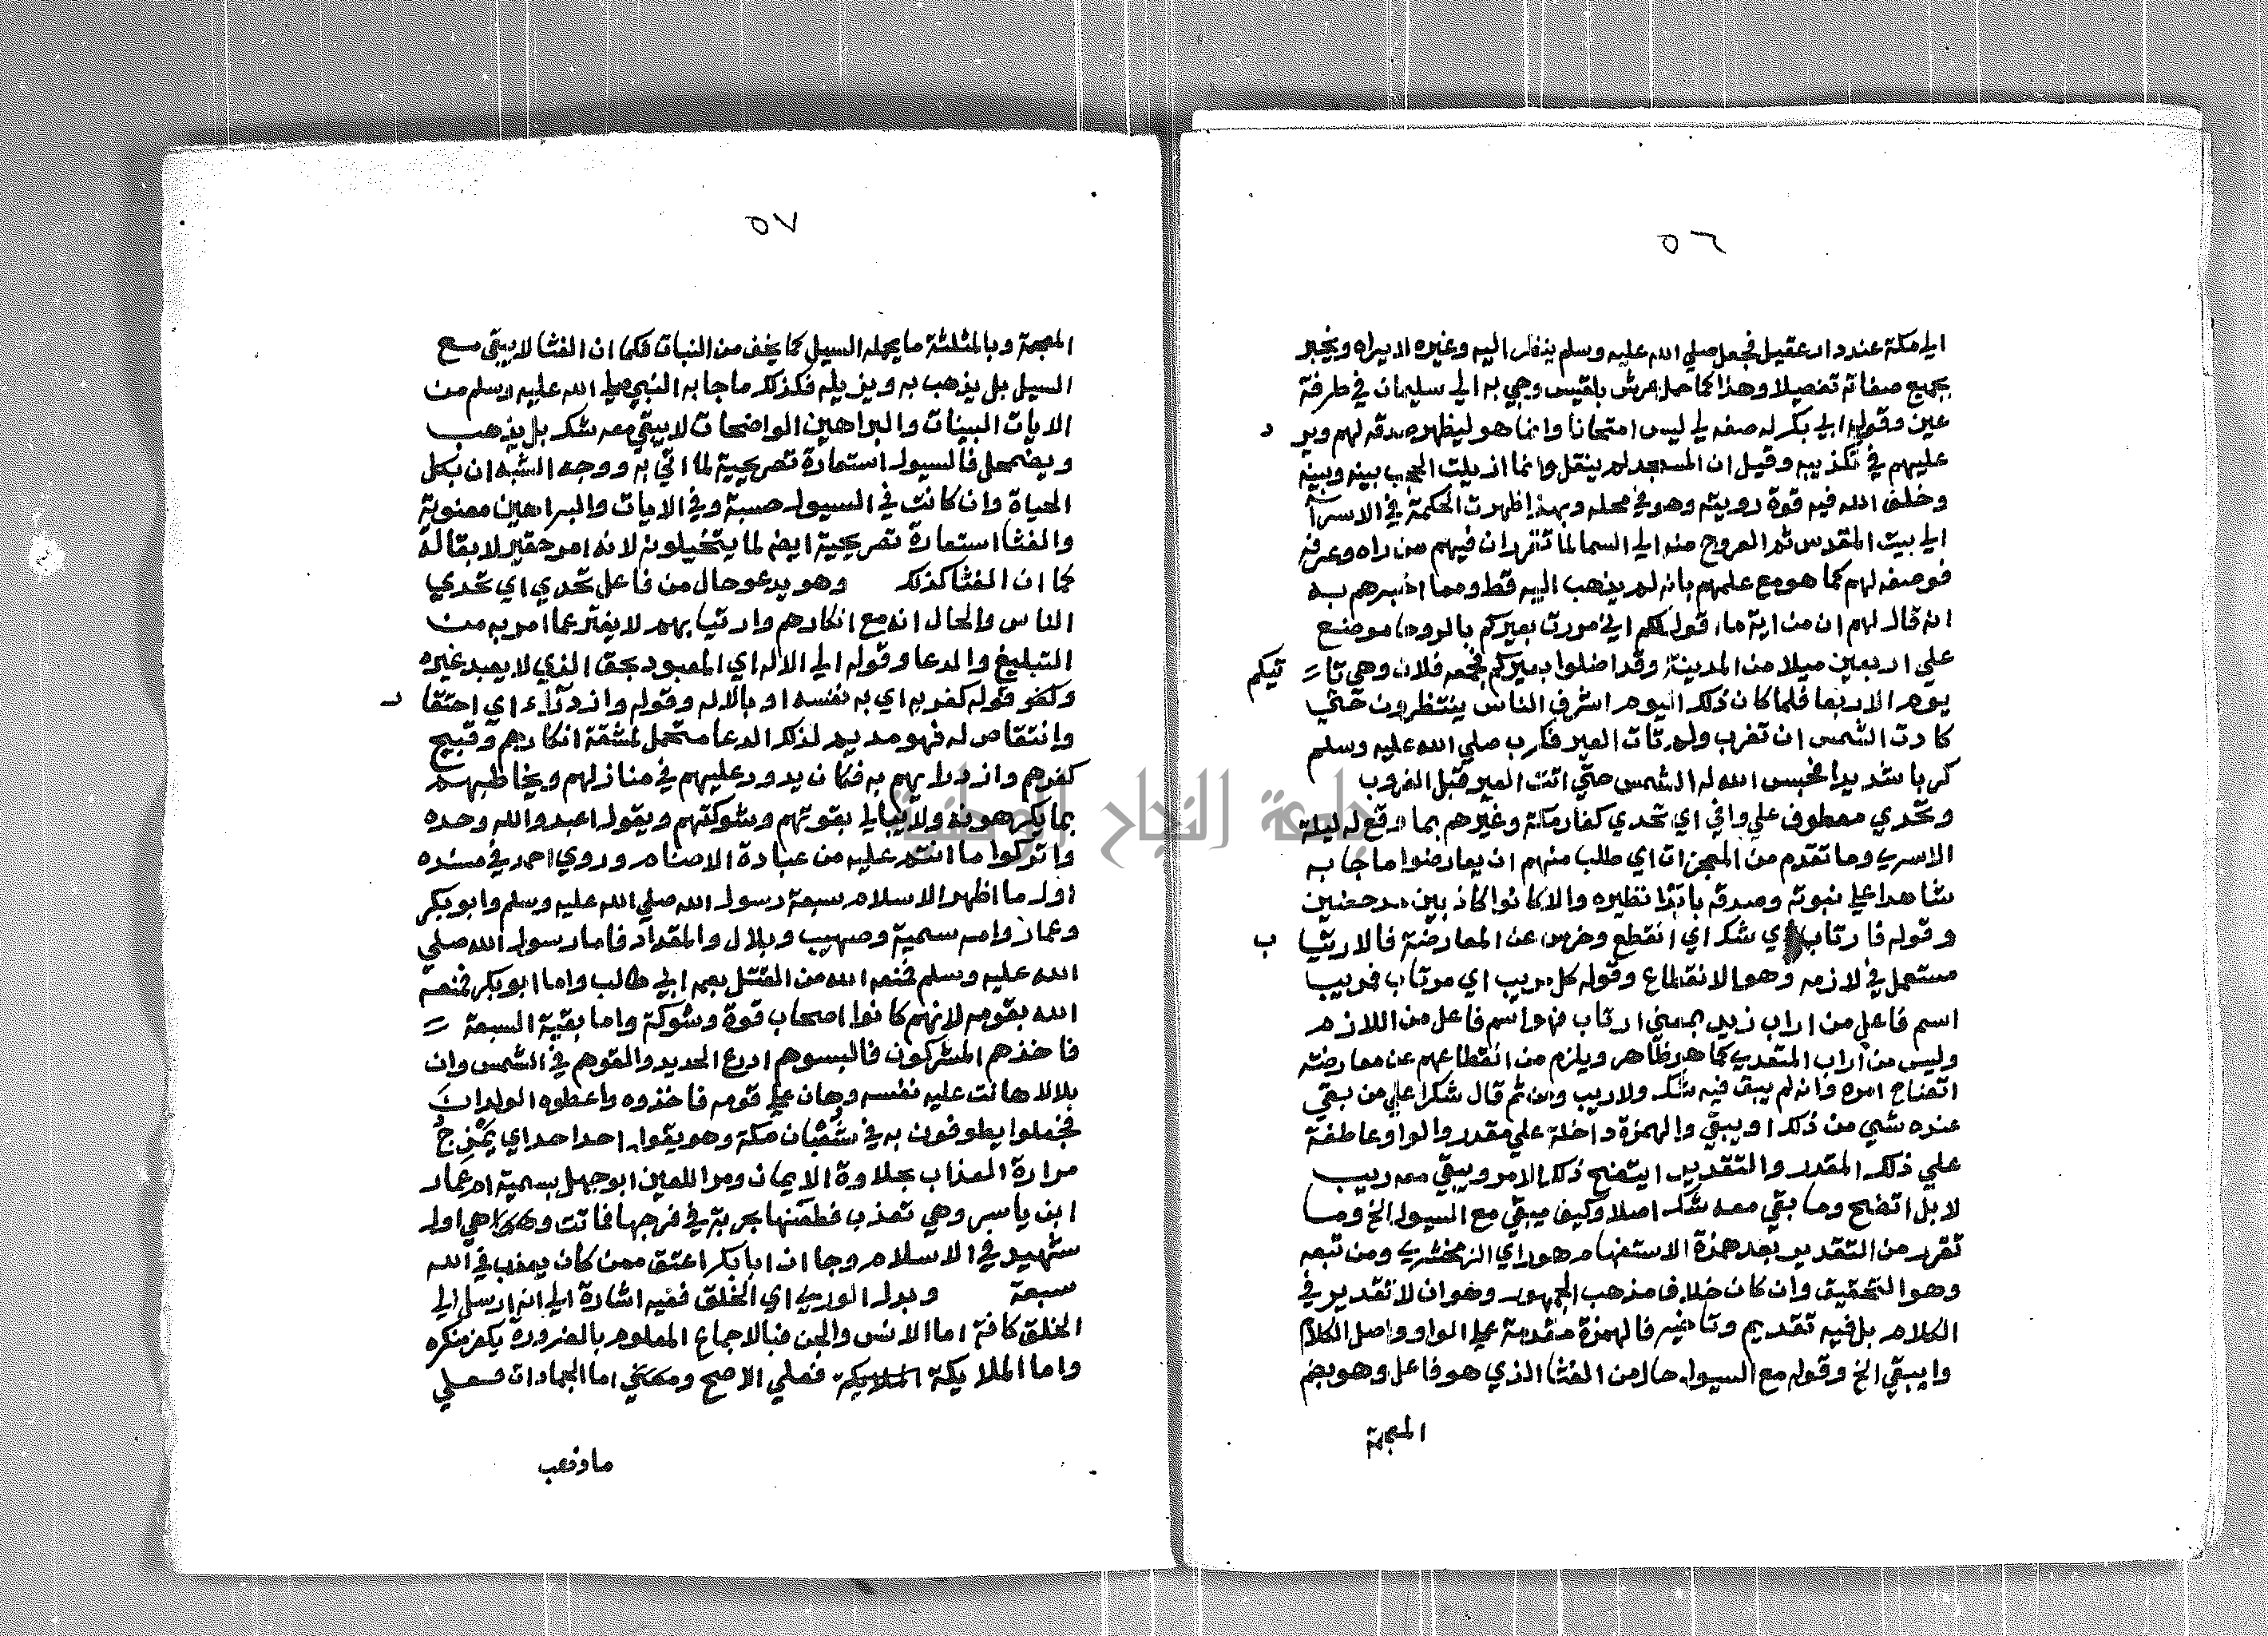 ٥٦
الي مكة عند دار عقيل فجعل صلي الله عليه وسلم ينظر اليه وغيره لا يراه ويخبر
بجميع صفاته تفصيلا وهذا كما حمل عرش بلقيس وجي به الي سليمان في طرفة
عين وقوله ابي بكر له صفه لي ليس امتحانا وانما هو ليظهر صدقه لهم وير د
عليهم في تكذيبه وقيل ان المسجد لم ينقل وانما ازيلت الحجب بينه وبينه
وخلق الله فيه قوة رويته وهو في محله وبهذا ظهرت الحكمة في الاسرا
الي بيت المقدس ثم العروج منه الي السما لما تقرر ان فيهم من راه وعرفه
فوصفه لهم كما هو مع علمهم بانه لم يذهب اليه قط ومما اخبرهم به
انه قال لهم ان من اية ما اقول لكم اني مررت بعيركم بالروحا موضع
علي اربعين ميلا من المدينة وقد اضلوا بعيركم فجمعه فلان وهي تا تيكم
يوم الاربعا فلما كان ذلك اليوم اشرف الناس ينتظرون حتي
كادت الشمس ان تغرب ولم تات العير فكرب صلي الله عليه وسلم
كربا شديدا فحبس الله له الشمس حتي اتت العير قبل الغروب
وتحدي معطوف علي وافي اي تحدي كفار مكة وغيرهم بما وقع له ليلة
الاسري وما تقدم من المعجزات اي طلب منهم ان يعارضوا ما جا به
شاهدا علي نبوته وصدقه بابدا نظيره والا كانوا كاذبين مدحضين
وقوله فارتاب اي شك اي انقطع وخرس عن المعارضة فالارتيا ب
مستعمل في لازمه وهو الانقطاع وقوله كل مريب اي مرتاب فمريب
اسم فاعل من اراب زيد بمعني ارتاب فهو اسم فاعل من اللازم
وليس من اراب المتعدي كما هو ظاهر ويلزم من انقطاعهم عن معارضته
اتضاح امره وانه لم يبق فيه شك ولا ريب ومن ثم قال شكرا علي من بقي
عنده شي من ذلك او يبقي والهمزة داخلة علي مقدر والواو عاطفة
علي ذلك المقدر والتقدير ايتضح ذلك الامر ويبقي معه ريب
لا بل اتضح وما بقي معه شك اصلا وكيف يبقي مع السيول الخ وما
تقرر من التقدير بعد همزة الاستفهام هو راي الزمخشري ومن تبعه
وهو التحقيق وان كان خلاف مذهب الجمهور وهو ان لا تقدير في
الكلام بل فيه تقديم وتاخير فالهمزة مقدمة علي الواو واصل الكلام
وايبقي الخ وقوله مع السيول حال من الغثا الذي هو فاعل وهو بضم
المعجمة
٥٧
المعجمة وبالمثلثة ما يحمله السيل كما يخف من النبات فكما ان الغثا لا يبقي مع
السيل بل يذهب به ويزيله فكذلك ما جا به النبي صلي الله عليه وسلم من
الايات البينات والبراهين الواضحات لا يبقي معه شك بل يذهب
ويضمحل فالسيول استعارة تصريحية لما اتي به ووجه الشبه ان بكل
الحياة وان كانت في السيول حسية وفي الايات والبراهين معنوية
والغثا استعارة تصريحية ايضا لما يتخيلونه لانه امر حقير لا بقا له
كما ان الغثا كذلك وهو يدعو حال من فاعل تحدي اي تحدي
الناس والحال انه مع انكارهم وارتيابهم لا يفتر عما امر به من
التبليغ والدعا وقوله الي الاله اي المعبود بحق الذي لا يعبد غيره
وكفر قوله كفر به اي به نفسه او بالاله وقوله وازدرآء اي احتقا ر
وانتقاص له فهو مديم لذلك الدعا متحمل لمشقة انكارهم وقبيح
كفرهم وازدرايهم به فكان يدور عليهم في منازلهم ويخاطبهم
بما يكرهونه ولا يبالي بقوتهم وشوكتهم ويقول اعبدوا الله وحده
واتركوا ما انتم عليه من عبادة الاصنام وروي احمد في مسنده
اول ما اظهر الاسلام سبعة رسول الله صلي الله عليه وسلم وابو بكر
وعمار وامه سمية وصهيب وبلال والمقداد فاما رسول الله صلي
الله عليه وسلم فمنعه الله من القتل بعمه ابي طالب واما ابو بكر فمنعه
الله بقومه لانهم كانوا اصحاب قوة وشوكة واما بقية السبعة
فاخذهم المشركون فالبسوهم ادرع الحديد والقوهم في الشمس وان
بلالا هانت عليه نفسه وهان علي قومه فاخذوه واعطوه الولدان
فجعلوا يطوفون به في شعبان مكة وهو يقول احد احد اي يمزج
مرارة العذاب بحلاوة الايمان ومر اللعين ابو جهل بسمية ام عمار
ابن ياسر وهي تعذب فطعنها بحربة في فرجها فماتت وكانت هي اول
شهيد في الاسلام وجا ان ابا بكر اعتق ممن كان يعذب في الله
سبعة ويدل الوري اي الخلق ففيه اشارة الي انه ارسل الي
الخلق كافة اما الانس والجن فبالاجماع المعلوم بالضرورة يكفر منكره
واما الملايكة الملايكة فعلي الاصح ومعني اما الجمادات فعلي
ما ذهب